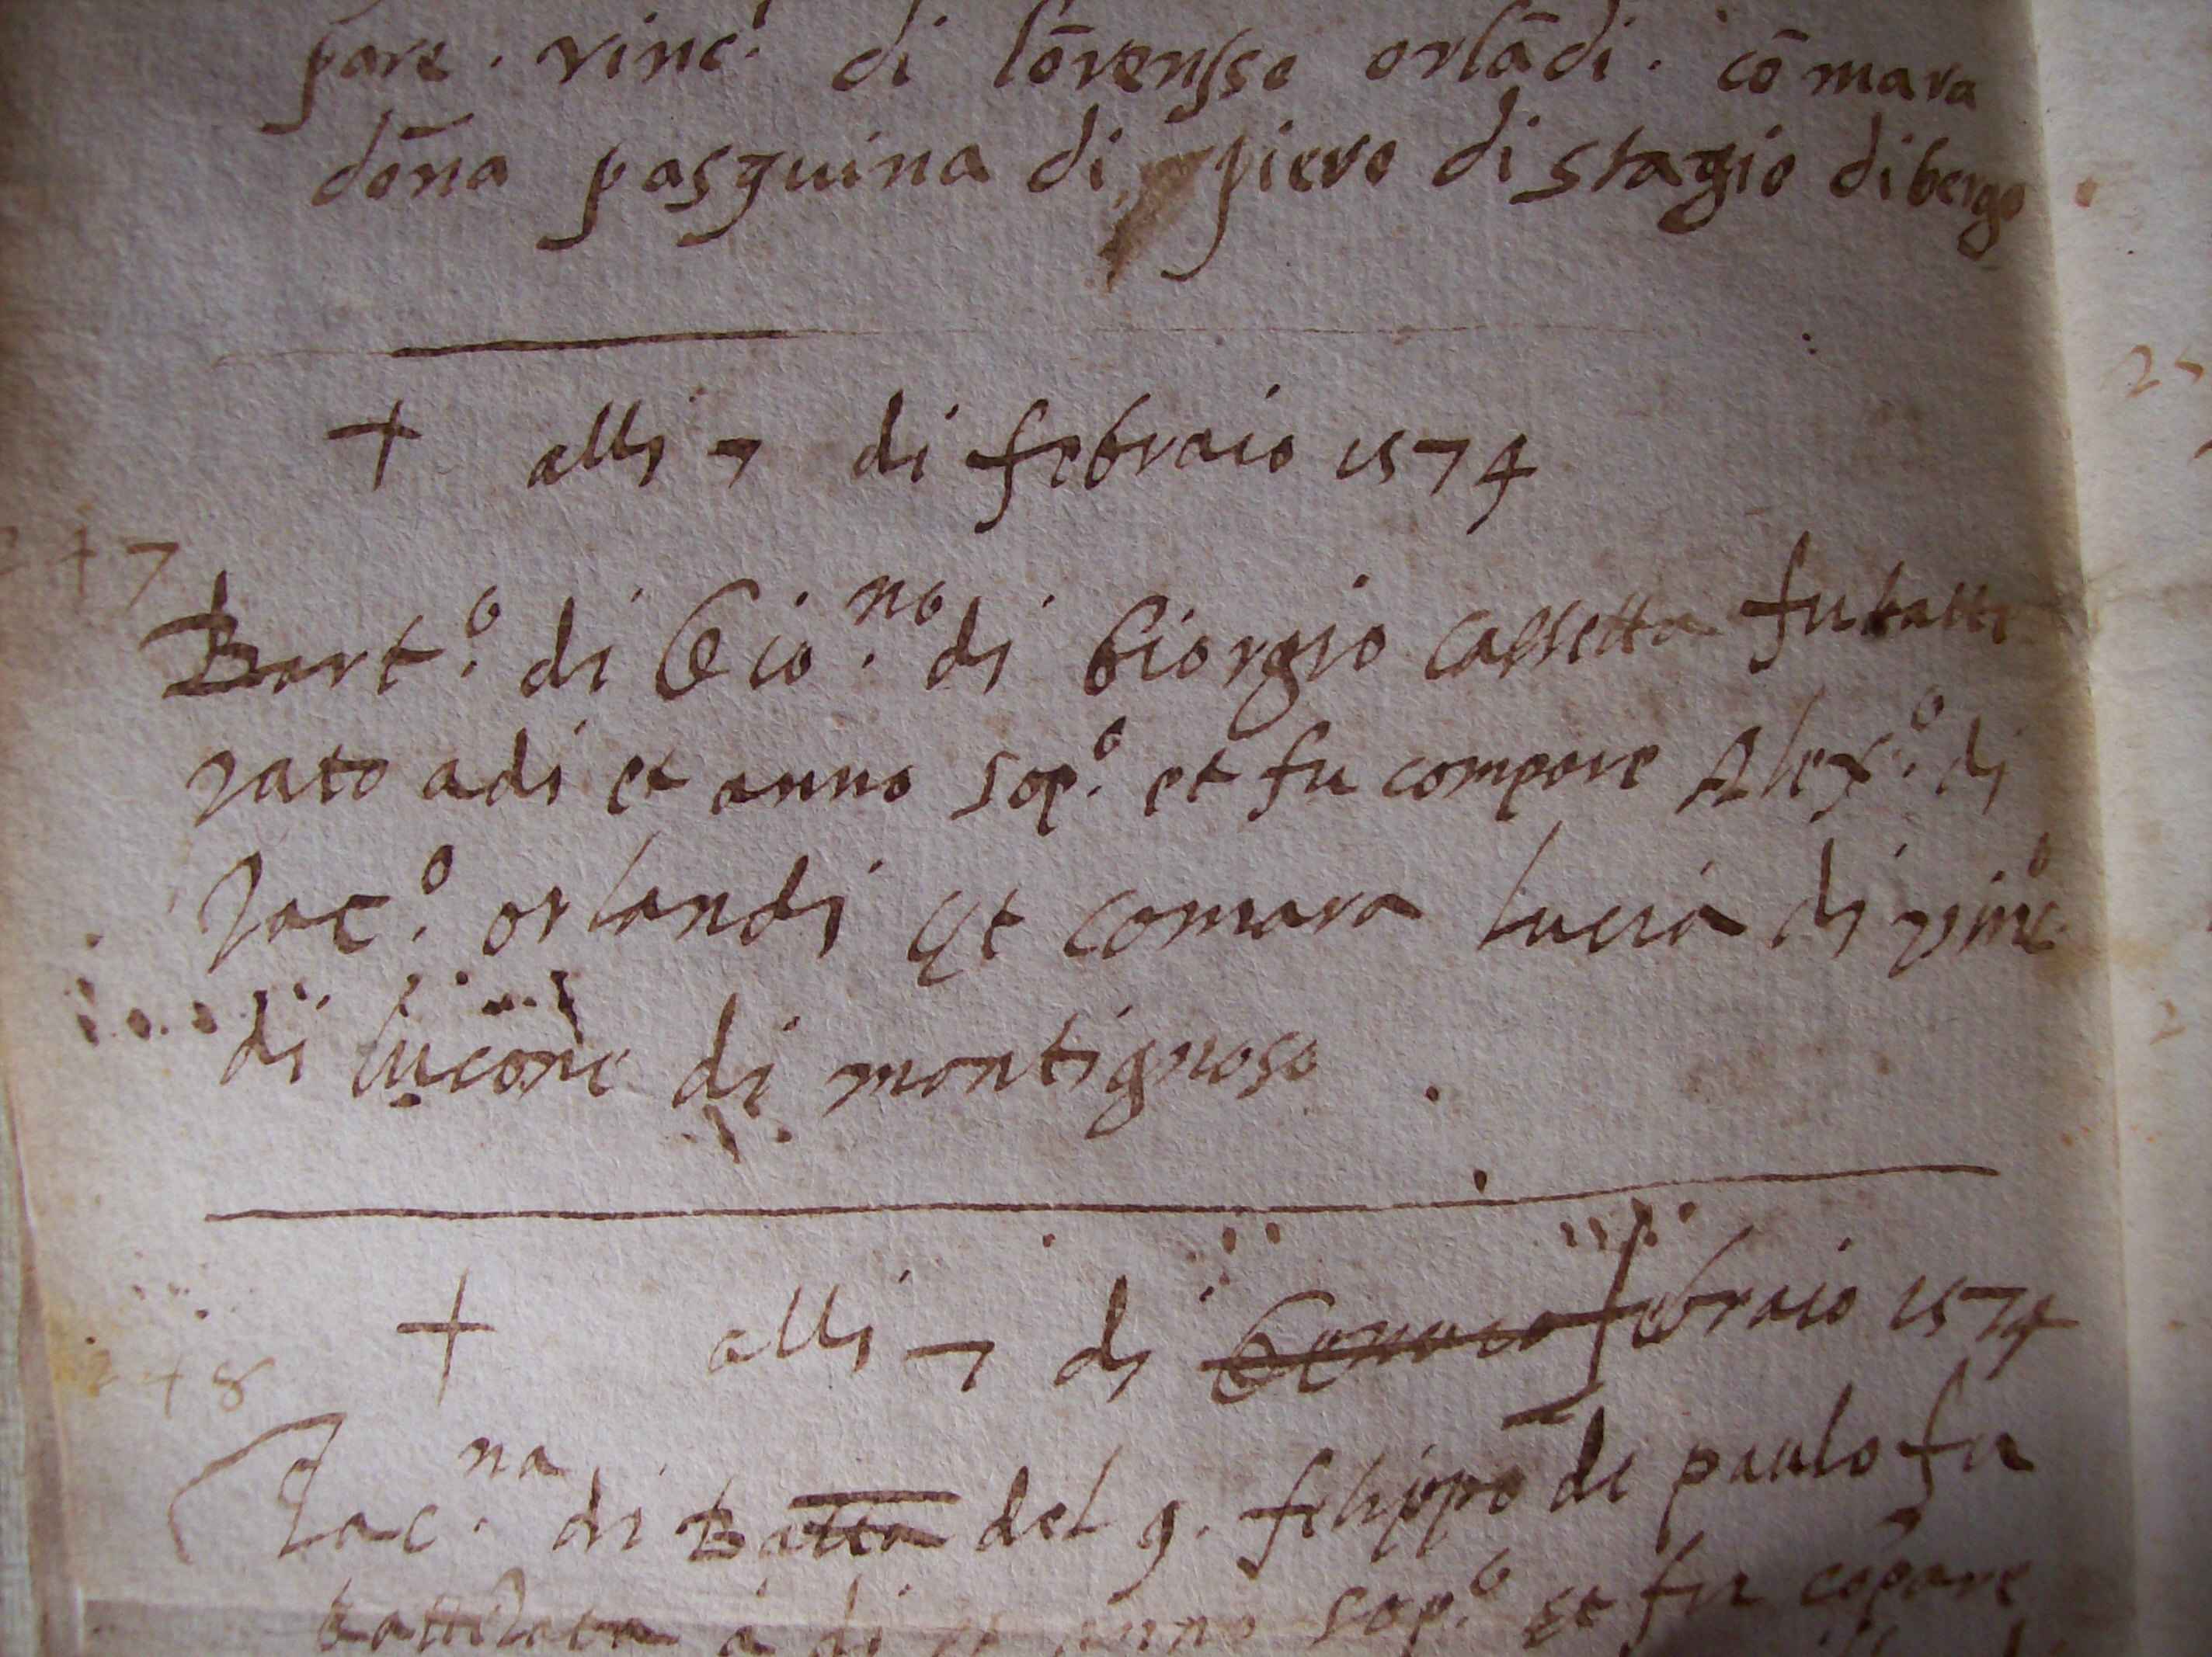 pare . vinc.o di lōrensso orlādi . cō mara
dōna pasquina di piero di stagio di bergo
+ alli 7 di febraio 1574
247
Bart.o di Gio.no di Giorgio Cassetta fu batte
zato adi et anno sop.o et fu compare Alex.o di
Jac.o orlandi Et comara lucia di vinc.o
di lucone di montignoso
+ alli 7 di Genaio febraio 1574
248
Jac.na di Batta del q. filippo di paulo fu
battezata a di et anno sop.o Et fu cōpare